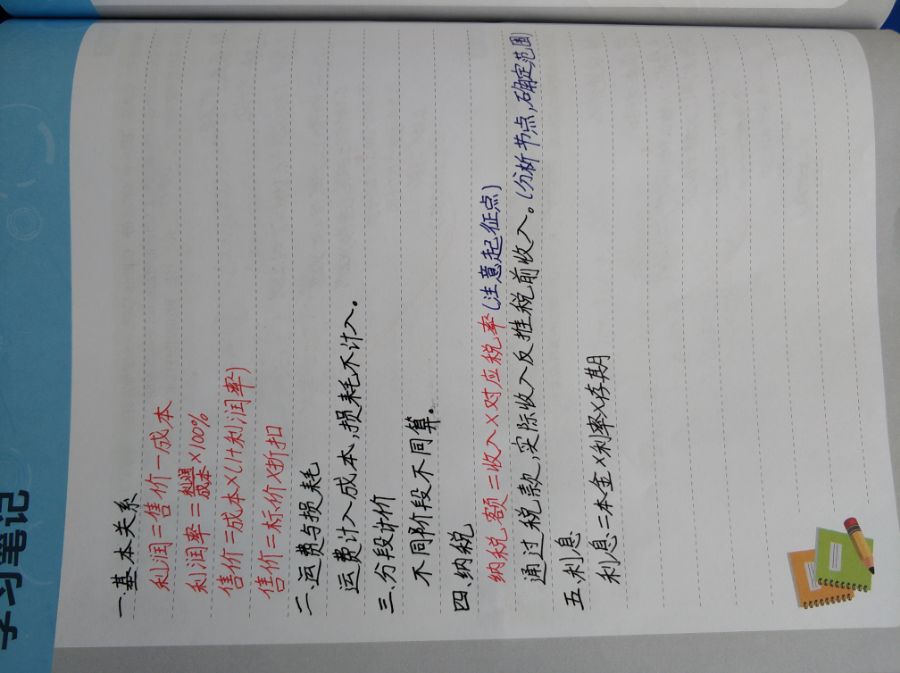 学习笔记
一.基本关系
利润=售价-成本
利润率=利润/成本×100%
售价=成本×(1+利润率)
售价=标价×折扣
二.运费与损耗
运费计入成本,损耗不计入。
三.分段计价
不同阶段不同算。
四.纳税
纳税额=收入×对应税率(注意起征点)
通过税款,实际收入反推税前收入。(分析节点,确定范围)
五.利息
利息=本金×利率×存期